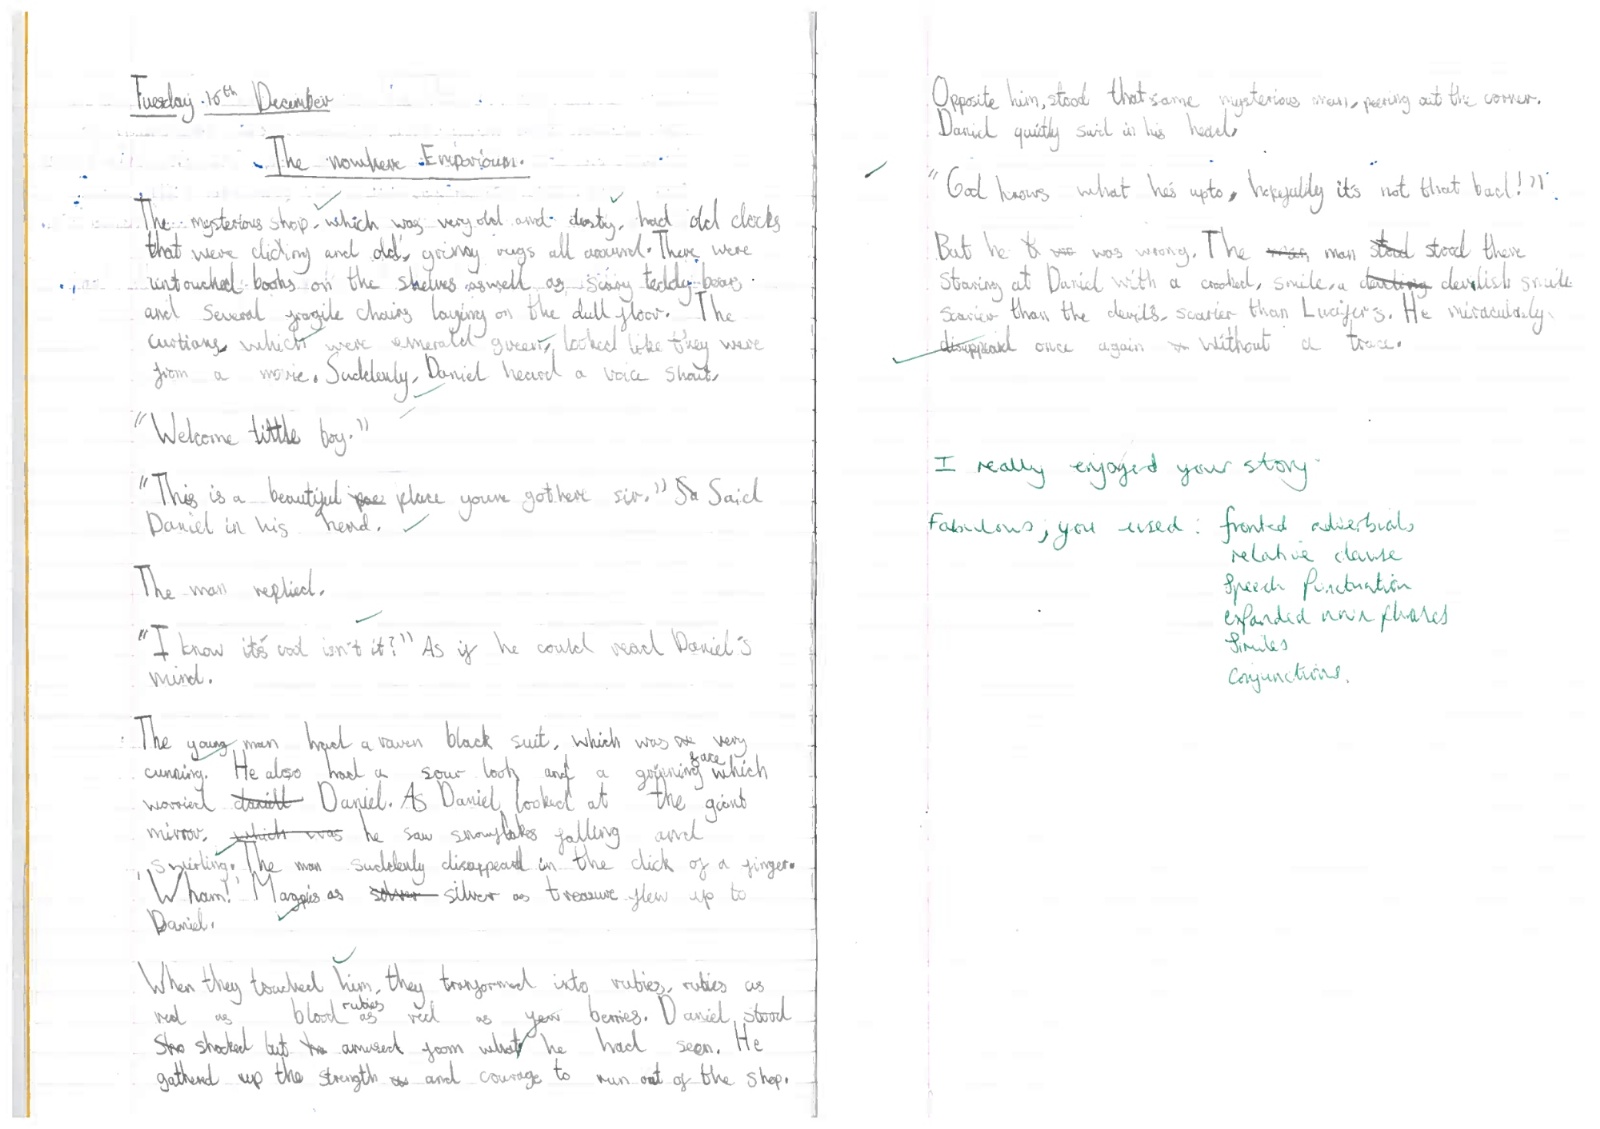 Tuesday 16th December
The nowhere Emporium.
The mysterious shop, which was very old and dusty, had old clocks
that were clicking and old, grimy rugs all around. There were
untouched books on the shelves aswell as scary teddy bears
and several fragile chairs laying on the dull floor. The
curtians, which were emerald green, looked like they were
from a movie. Suddenly, Daniel heard a voice shout,
"Welcome little boy."
"This is a beautiful place youve gothere sir." Said
Daniel in his head.
The man replied.
"I know it's cool isn't it?" As if he could read Daniel's
mind.
The young man had a raven black suit, which was very
cunning. He also had a sour look and a grinning face which
worried Daniel. As Daniel looked at the giant
mirror, he saw snowflakes falling and
swirling. The man suddenly disappeard in the click of a finger.
"Wham!" Magpies as silver as treasure flew up to
Daniel.
When they touched him, they transformed into rubies, rubies as
red as blood rubies as red as yew berries. Daniel stood
shocked but amused from what he had seen. He
gatherd up the strength and courage to run out of the shop.
Opposite him, stood that same mysterious man, peering out the corner.
Daniel quitly said in his head,
"God knows what he's upto, hopefully it's not that bad!"
But he was wrong. The man stood there
staring at Daniel with a crooked, smile, a devilish smile
scarier than the devils, scarier than Lucifers. He miraculously
disappeard once again without a trace.
I really enjoyed your story.
Fabulous, you used: fronted adverbials
relative clause
Speech Punctuation
expanded noun phrases
Similes
Conjunctions.